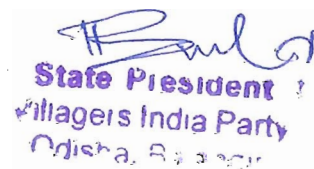 State President
Villagers India Party
Odisha,